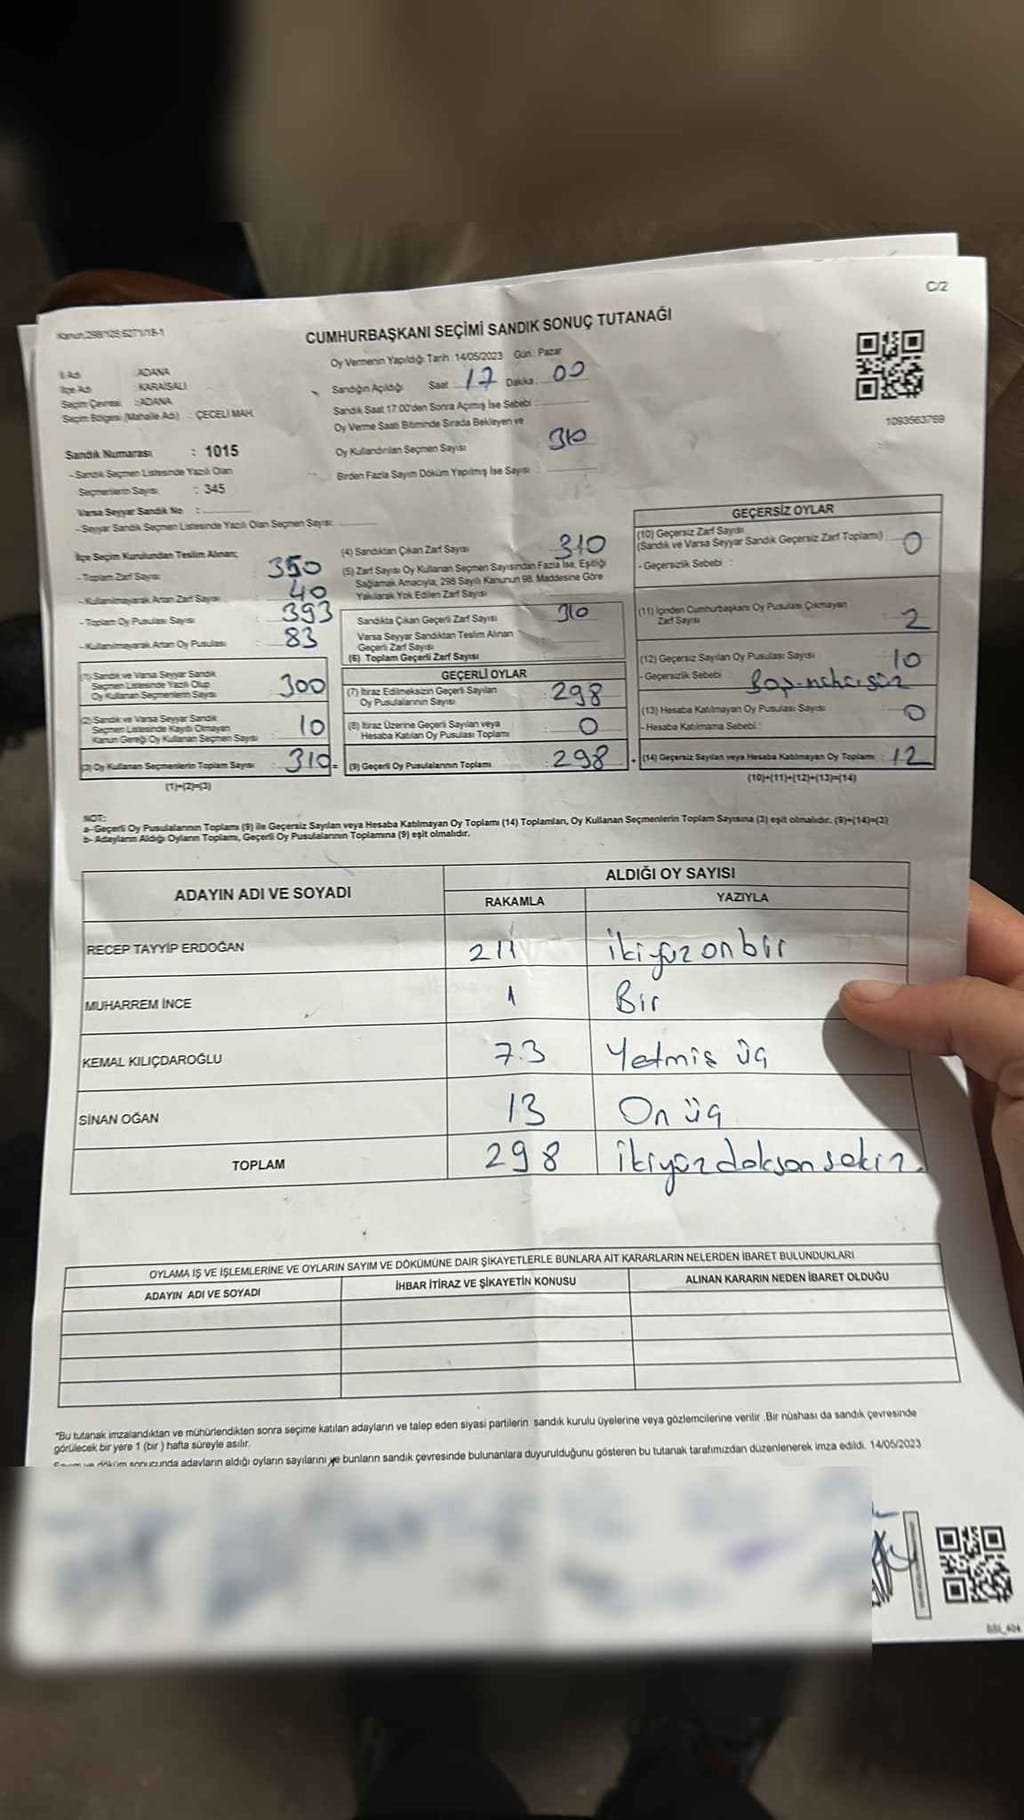 C/2
Kanun:298/105;6271/18-1
CUMHURBAŞKANI SEÇİMİ SANDIK SONUÇ TUTANAĞI
Oy Vermenin Yapıldığı Tarih :14/05/2023 Gün : Pazar
İl Adı : ADANA
İlçe Adı : KARAİSALI
Seçim Çevresi : ADANA
Seçim Bölgesi (Mahalle Adı) : ÇECELİ MAH.
Sandığın Açıldığı Saat : 17 Dakika : 00
Sandık Saat 17.00'den Sonra Açılmış İse Sebebi :
Oy Verme Saati Bitiminde Sırada Bekleyen ve
Oy Kullandırılan Seçmen Sayısı : 310
Birden Fazla Sayım Döküm Yapılmış İse Sayısı :
1093563769
Sandık Numarası : 1015
-Sandık Seçmen Listesinde Yazılı Olan
Seçmenlerin Sayısı : 345
Varsa Seyyar Sandık No :
-Seyyar Sandık Seçmen Listesinde Yazılı Olan Seçmen Sayısı:
İlçe Seçim Kurulundan Teslim Alınan;
- Toplam Zarf Sayısı : 350
- Kullanılmayarak Artan Zarf Sayısı : 40
- Toplam Oy Pusulası Sayısı : 393
- Kullanılmayarak Artan Oy Pusulası : 83
(1) Sandık ve Varsa Seyyar Sandık
Seçmen Listesinde Yazılı Olup
Oy Kullanan Seçmenlerin Sayısı : 300
(2) Sandık ve Varsa Seyyar Sandık
Seçmen Listesinde Kaydı Olmayan
Kanun Gereği Oy Kullanan Seçmen Sayısı : 10
(3) Oy Kullanan Seçmenlerin Toplam Sayısı : 310
(1)+(2)=(3)
(4) Sandıktan Çıkan Zarf Sayısı : 310
(5) Zarf Sayısı Oy Kullanan Seçmen Sayısından Fazla İse, Eşitliği
Sağlamak Amacıyla; 298 Sayılı Kanunun 98. Maddesine Göre
Yakılarak Yok Edilen Zarf Sayısı
Sandıkta Çıkan Geçerli Zarf Sayısı : 310
Varsa Seyyar Sandıktan Teslim Alınan
Geçerli Zarf Sayısı
(6) Toplam Geçerli Zarf Sayısı
GEÇERLİ OYLAR
(7) İtiraz Edilmeksizin Geçerli Sayılan
Oy Pusulalarının Sayısı : 298
(8) İtiraz Üzerine Geçerli Sayılan veya
Hesaba Katılan Oy Pusulası Toplamı : 0
= (9) Geçerli Oy Pusulalarının Toplamı : 298
GEÇERSİZ OYLAR
(10) Geçersiz Zarf Sayısı
(Sandık ve Varsa Seyyar Sandık Geçersiz Zarf Toplamı) : 0
- Geçersizlik Sebebi :
(11) İçinden Cumhurbaşkanı Oy Pusulası Çıkmayan
Zarf Sayısı : 2
(12) Geçersiz Sayılan Oy Pusulası Sayısı : 10
- Geçersizlik Sebebi :
(13) Hesaba Katılmayan Oy Pusulası Sayısı : 0
- Hesaba Katılmama Sebebi :
+ (14) Geçersiz Sayılan veya Hesaba Katılmayan Oy Toplamı : 12
(10)+(11)+(12)+(13)=(14)
NOT:
a- Geçerli Oy Pusulalarının Toplamı (9) ile Geçersiz Sayılan veya Hesaba Katılmayan Oy Toplamı (14) Toplamları, Oy Kullanan Seçmenlerin Toplam Sayısına (3) eşit olmalıdır. (9)+(14)=(3)
b- Adayların Aldığı Oyların Toplamı, Geçerli Oy Pusulalarının Toplamına (9) eşit olmalıdır.
ADAYIN ADI VE SOYADI
ALDIĞI OY SAYISI
RAKAMLA YAZIYLA
RECEP TAYYİP ERDOĞAN 211 ikiyüz on bir
MUHARREM İNCE 1 Bir
KEMAL KILIÇDAROĞLU 73 Yetmiş üç
SİNAN OĞAN 13 On üç
TOPLAM 298 ikiyüz doksan sekiz.
OYLAMA İŞ VE İŞLEMLERİNE VE OYLARIN SAYIM VE DÖKÜMÜNE DAİR ŞİKAYETLERLE BUNLARA AİT KARARLARIN NELERDEN İBARET BULUNDUKLARI
ADAYIN ADI VE SOYADI İHBAR İTİRAZ VE ŞİKAYETİN KONUSU ALINAN KARARIN NEDEN İBARET OLDUĞU
*Bu tutanak imzalandıktan ve mühürlendikten sonra seçime katılan adayların ve talep eden siyasi partilerin sandık kurulu üyelerine veya gözlemcilerine verilir .Bir nüshası da sandık çevresinde
görülecek bir yere 1 (bir ) hafta süreyle asılır.
Sayım ve döküm sonucunda adayların aldığı oyların sayılarını ve bunların sandık çevresinde bulunanlara duyurulduğunu gösteren bu tutanak tarafımızdan düzenlenerek imza edildi. 14/05/2023